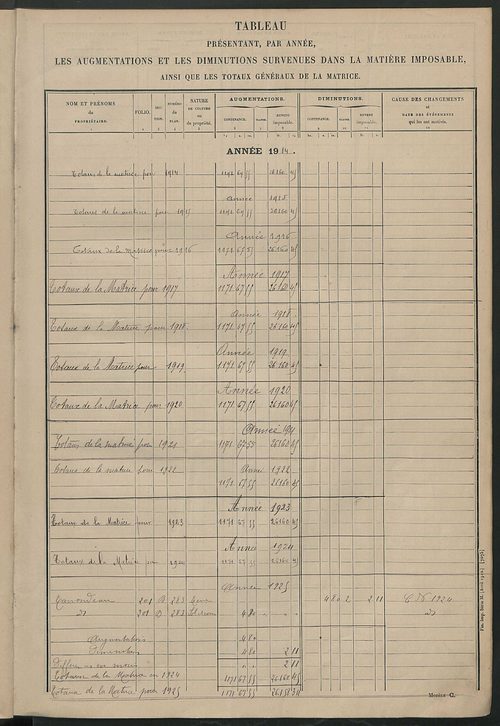 TABLEAU
PRÉSENTANT, PAR ANNÉE,
LES AUGMENTATIONS ET LES DIMINUTIONS SURVENUES DANS LA MATIÈRE IMPOSABLE,
AINSI QUE LES TOTAUX GÉNÉRAUX DE LA MATRICE.
NOM ET PRÉNOMS du PROPRIÉTAIRE. FOLIO. SECTION. NUMÉRO du PLAN. NATURE DE CULTURE ou de propriété. AUGMENTATIONS. CONTENANCE. CLASSE. REVENU imposable. DIMINUTIONS. CONTENANCE. CLASSE. REVENU imposable. CAUSE DES CHANGEMENTS et DATE DES ÉVÉNEMENTS qui les ont motivés.
ANNÉE 1914.
Totaux de la matrice pour 1914 67 55 26160 45
Année 1915
Totaux de la matrice pour 1915 67 55 26160 45
Année 1916
Totaux de la matrice pour 1916 67 55 26160 45
Année 1917
Totaux de la Matrice pour 1917 1171 67 55 26160 45
Année 1918
Totaux de la Matrice pour 1918 1171 67 55 26160 45
Année 1919
Totaux de la Matrice pour 1919 1171 67 55 26160 45
Année 1920
Totaux de la Matrice pour 1920 1171 67 55 26160 45
Année 1921
Totaux de la matrice pour 1921 1171 67 55 26160 45
Totaux de la matrice pour 1922 Année 1922
1171 67 55 26160 45
Année 1923
Totaux de la Matrice pour 1923 1171 67 55 26160 45
Année 1924
Totaux de la Matrice pour 1924 1171 67 55 26160 45
Année 1925
201 283 480 2 2 11 1924
do 201 283 480
Augmentations 480
Diminution 480 2 11
Différence en moins 2 11
Totaux de la Matrice en 1924 1171 67 55 26160 45
Totaux de la Matrice pour 1925 1171 67 55 26158 34
Modèle C.